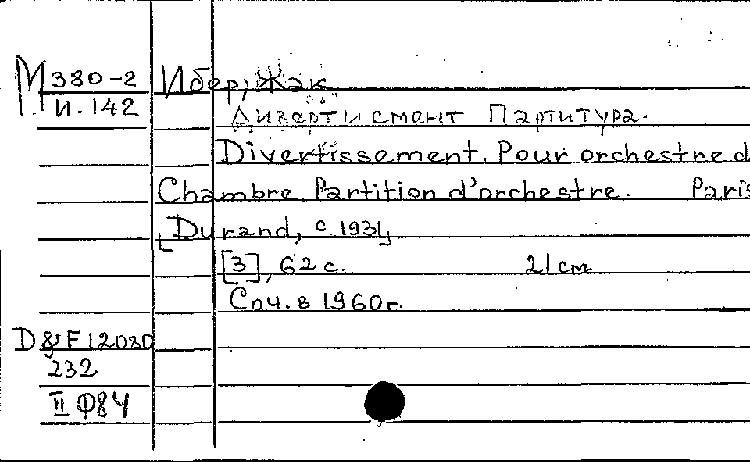 М 380-2 Ибер, Жак
И. 142
Дивертисмент Партитура.
Divertissement. Pour orchestre d
Chambre. Partition d'orchestre. Paris
Durand, c 1931
[3], 62 с. 21 cm
Соч. в 1960г.
D & F 12080
232
II Ф84